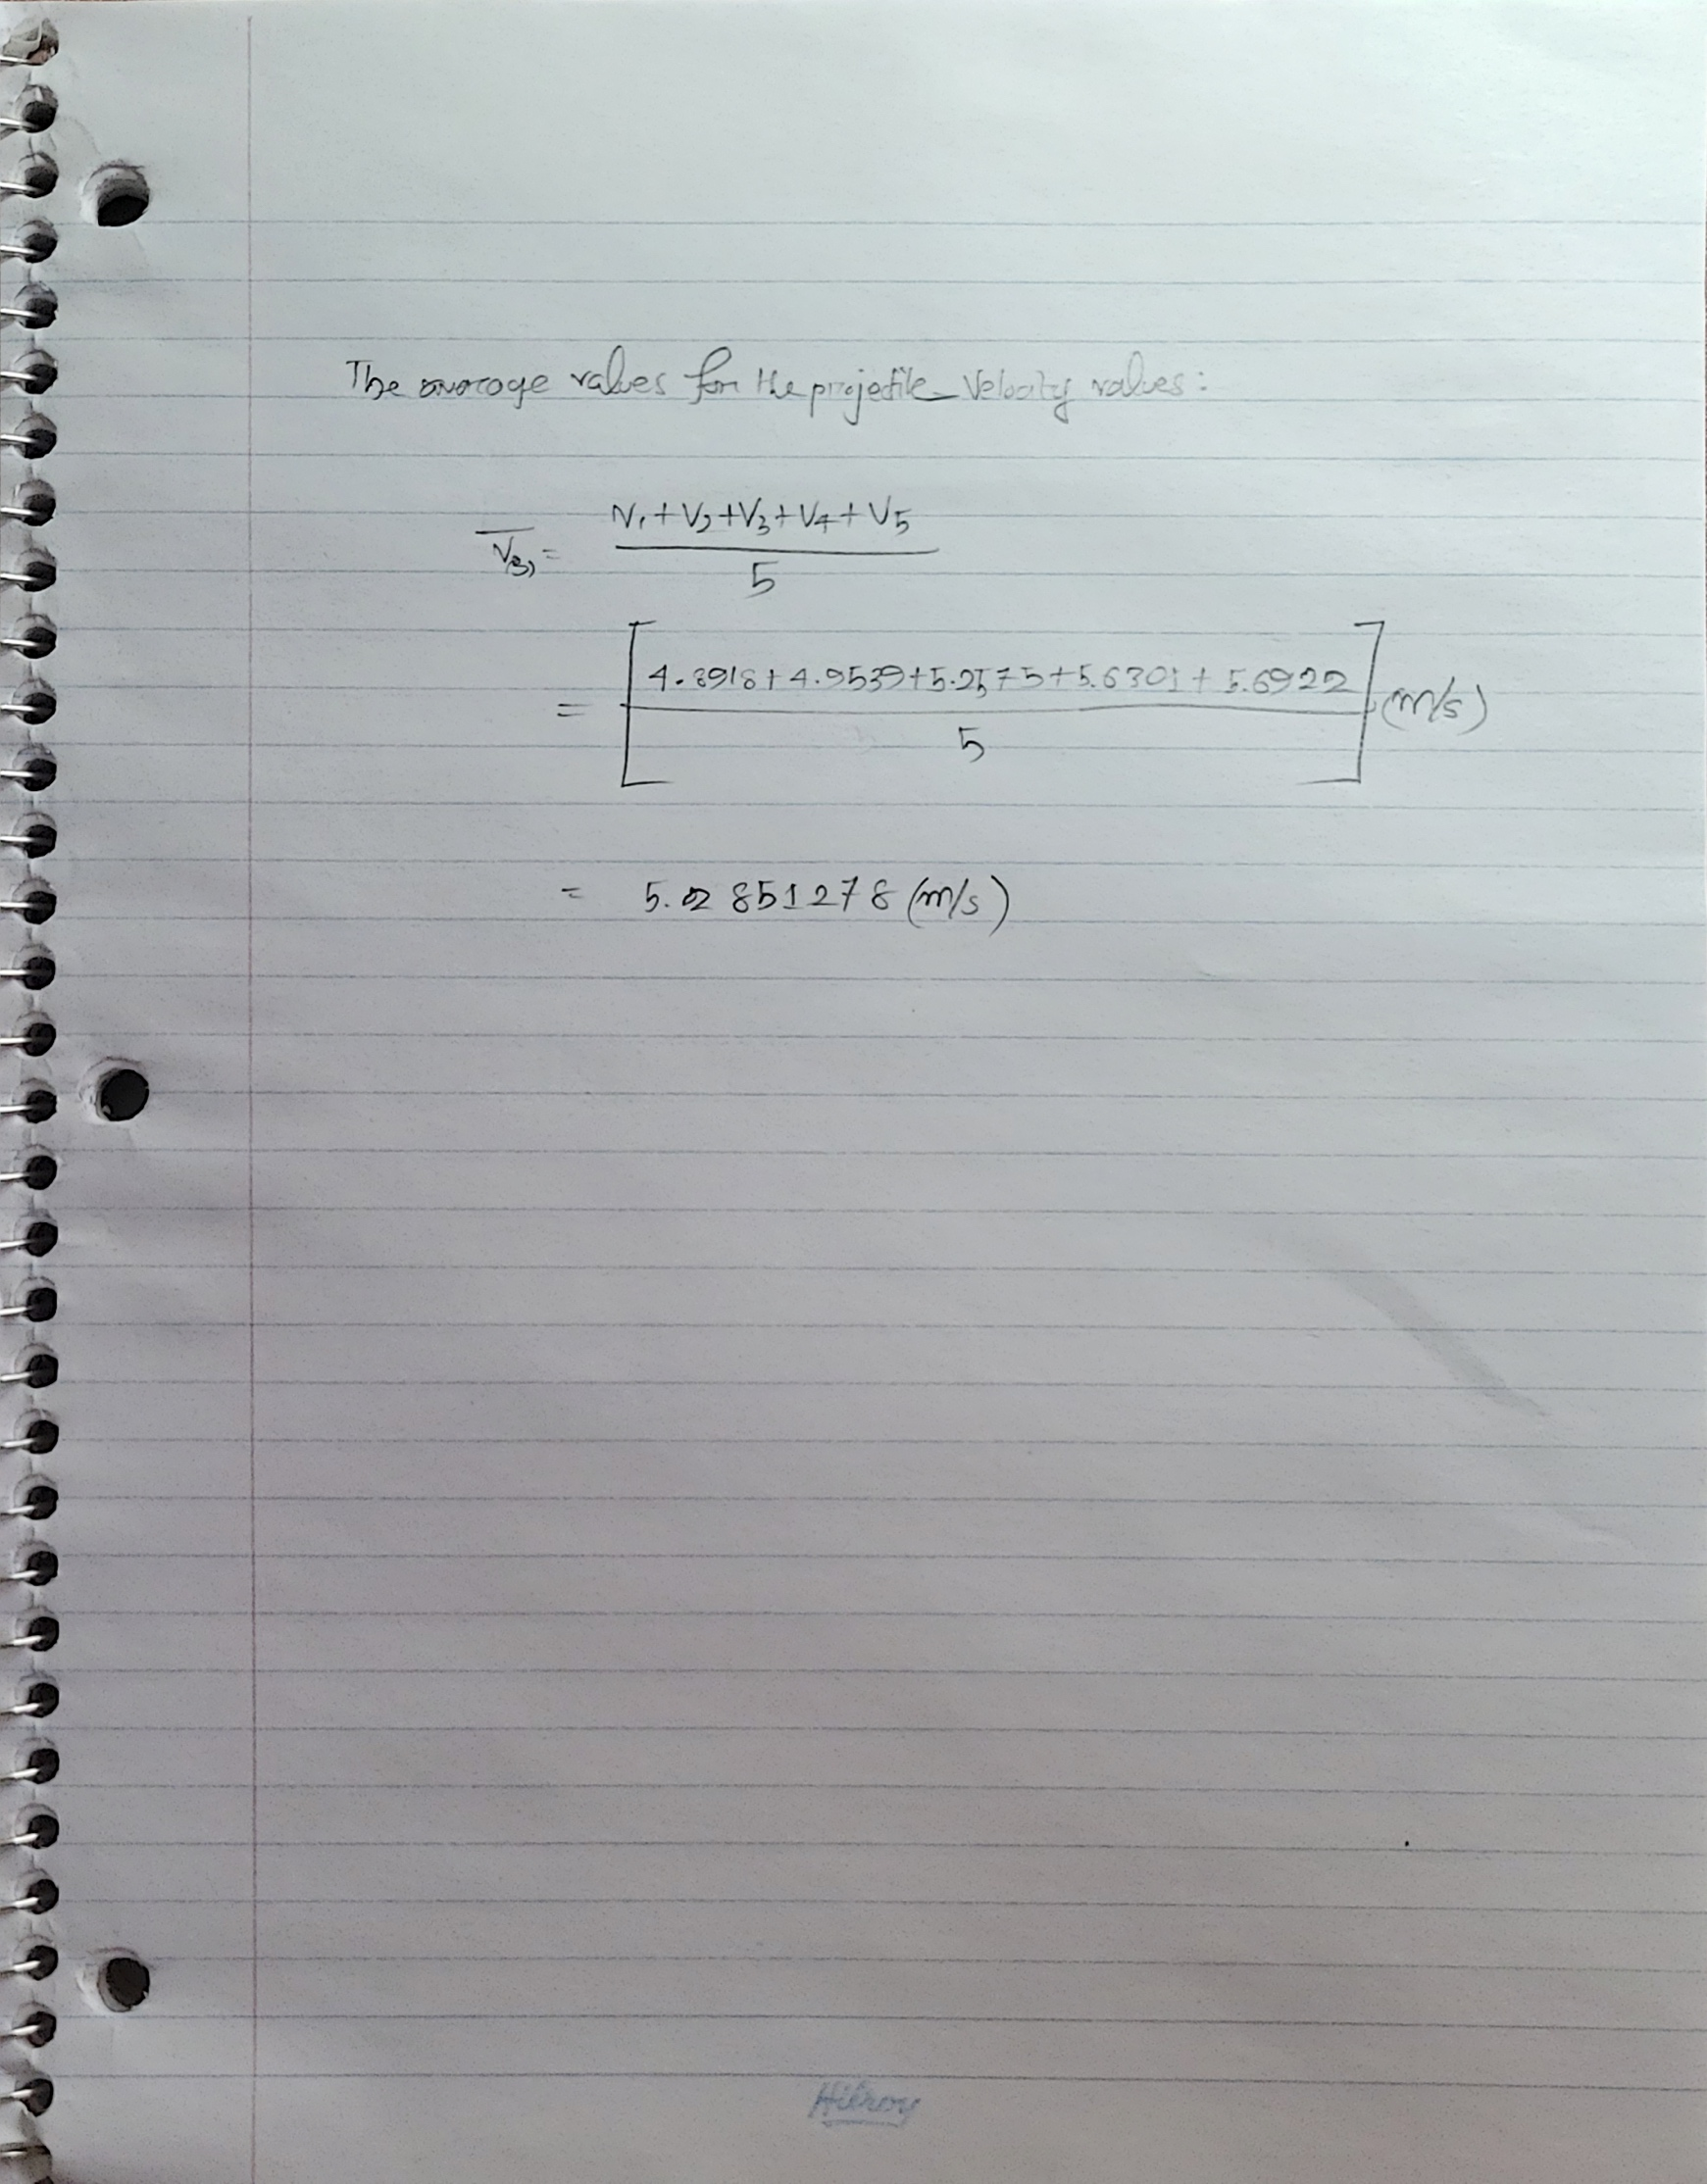 The average values for the projectile Velocity values:
V̅(3) = (V1+V2+V3+V4+V5)/5
= [(4.8918+4.9539+5.2575+5.6301+5.6922)/5] (m/s)
= 5.02851278 (m/s)
Hilroy